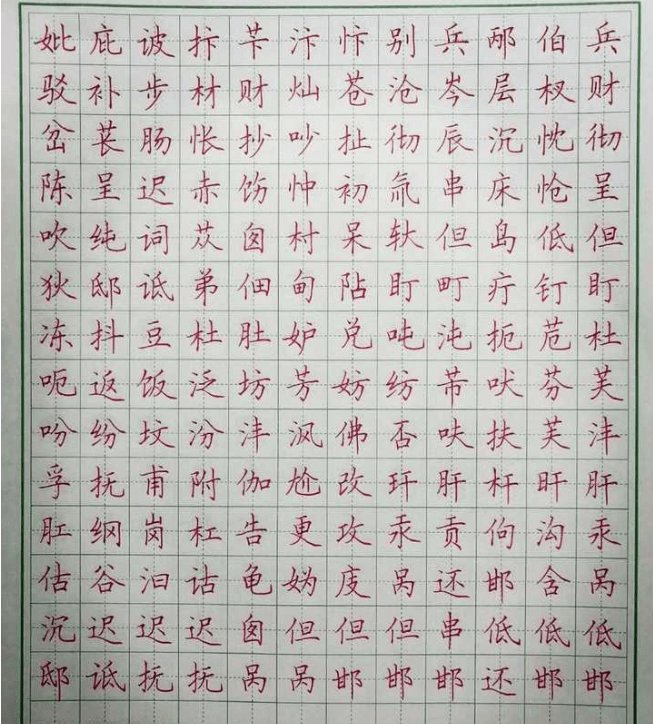 妣 庇 诐 抃 苄 汴 忭 别 兵 邴 伯 兵
驳 补 步 材 财 灿 苍 沧 岑 层 杈 财
岔 苌 肠 怅 抄 吵 扯 彻 辰 沉 忱 彻
陈 呈 迟 赤 饬 忡 初 氚 串 床 怆 呈
吹 纯 词 苁 囱 村 呆 轪 但 岛 低 但
狄 邸 诋 弟 佃 甸 阽 盯 町 疔 钉 盯
冻 抖 豆 杜 肚 妒 兑 吨 沌 扼 苊 杜
呃 返 饭 泛 坊 芳 妨 纺 芾 吠 芬 芙
吩 纷 坟 汾 沣 沨 佛 否 呋 扶 芙 沣
孚 抚 甫 附 伽 尬 改 玕 肝 杆 旰 肝
肛 纲 岗 杠 告 更 攻 汞 贡 佝 沟 汞
估 谷 汩 诂 龟 妫 庋 呙 还 邯 含 呙
沉 迟 迟 迟 囱 但 但 但 串 低 低 低
邸 诋 抚 抚 呙 呙 邯 邯 邯 还 邯 邯